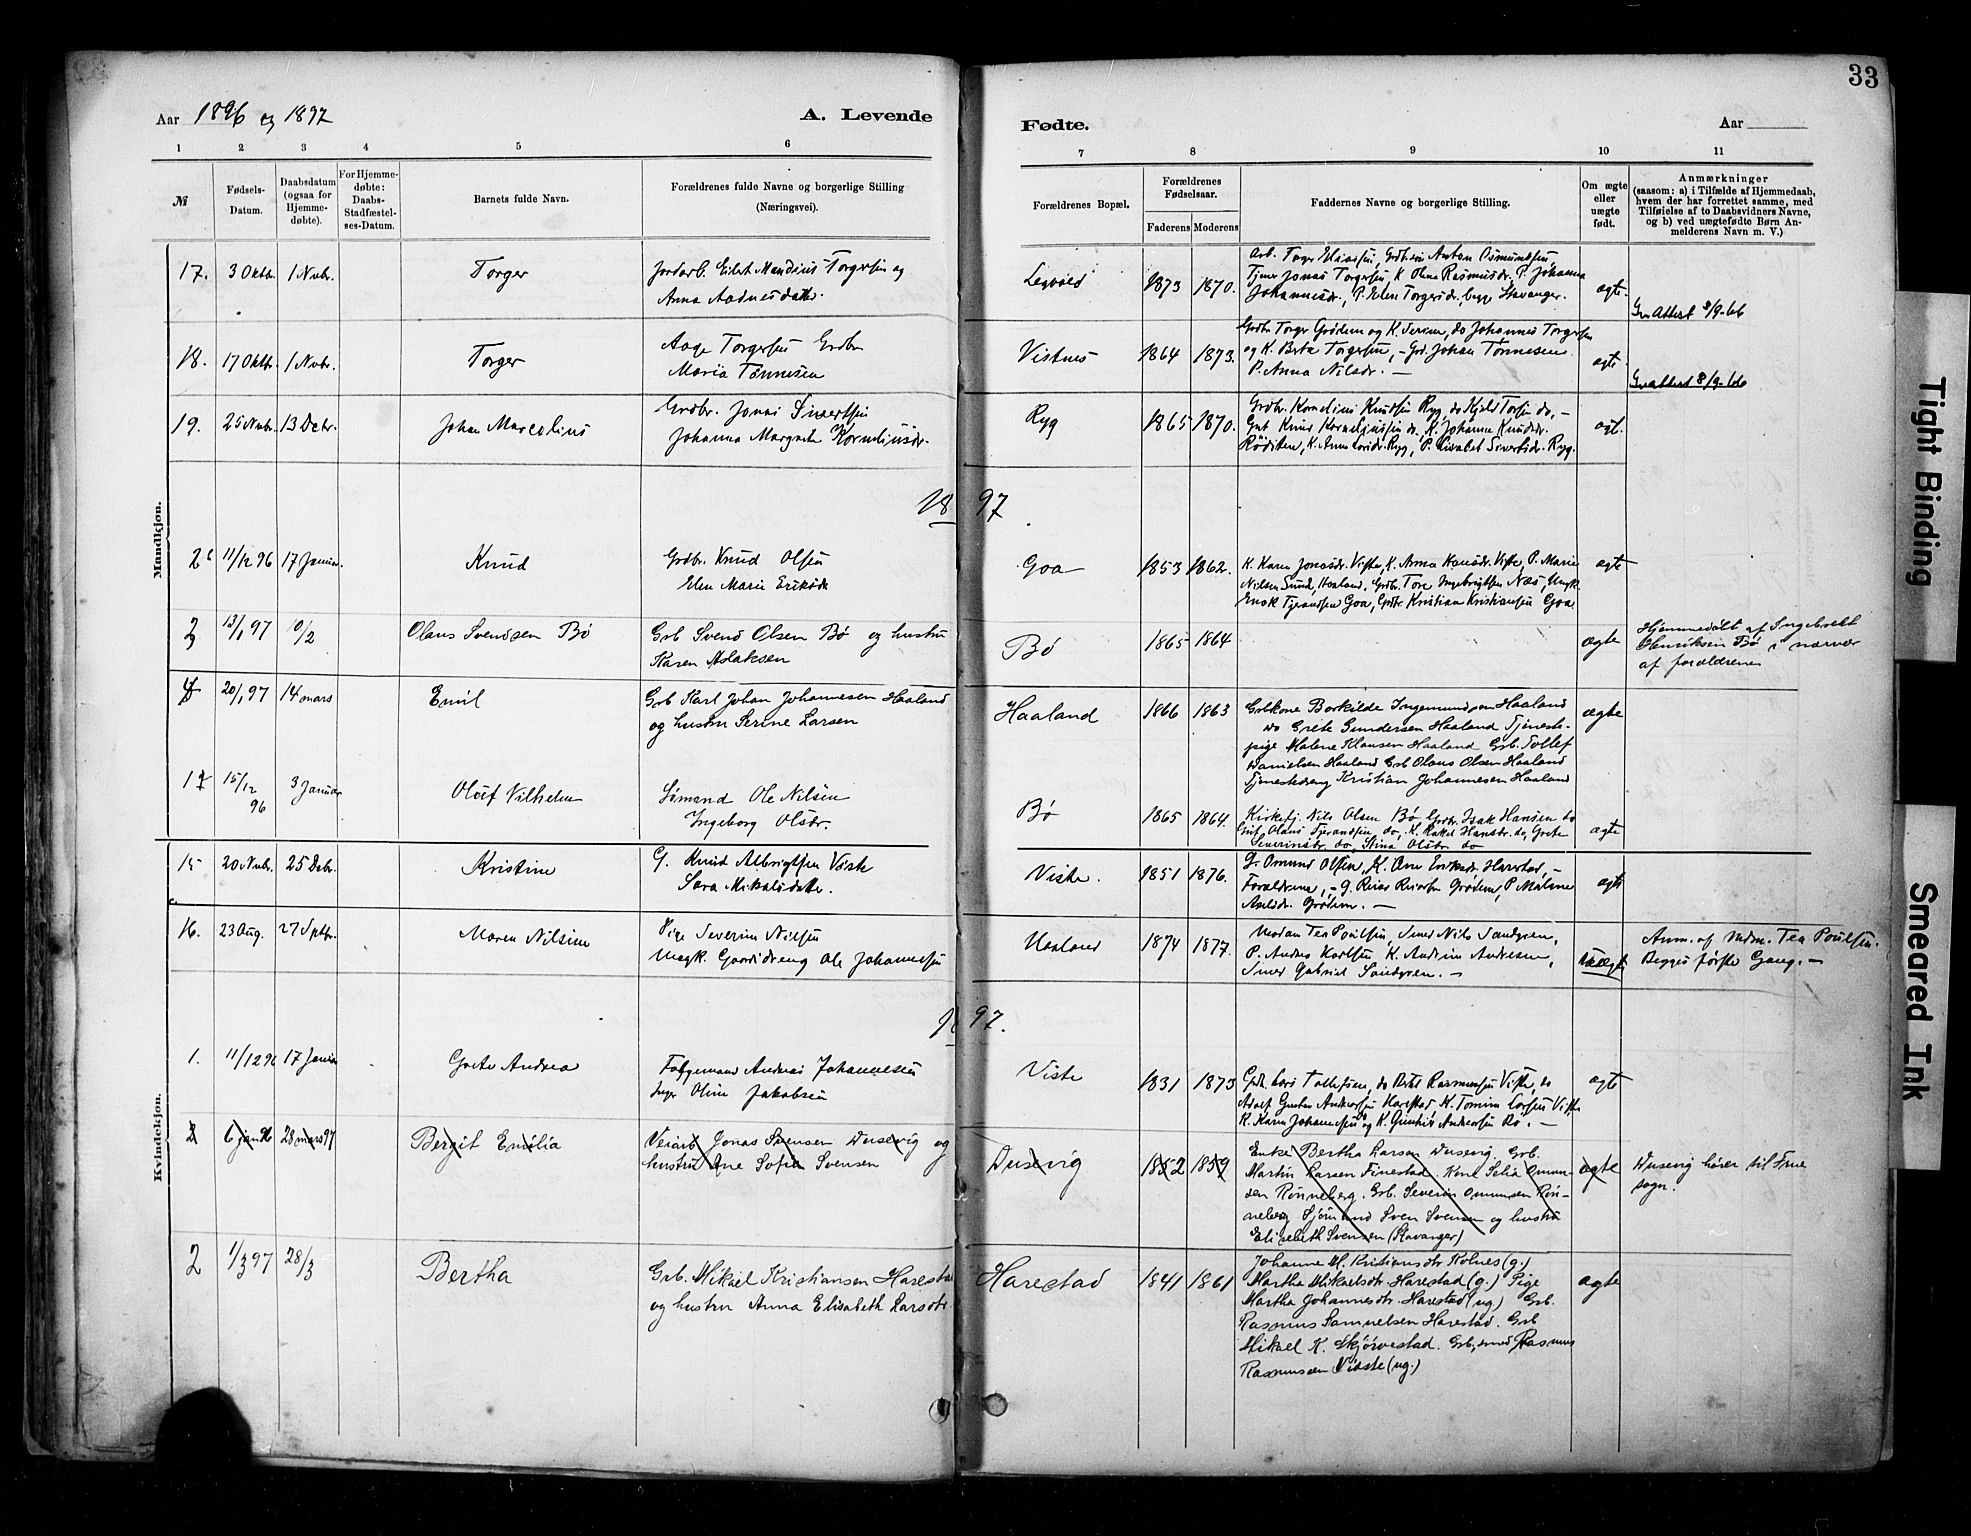 33
Aar 1896 og 1897
A. Levende
Fødte.
Aar
1 2 3 4 5 6 7 8 9 10 11
№
Fødsels-
Datum.
Daabsdatum
(ogsaa for
Hjemme-
døbte).
For Hjemme-
døbte:
Daabs-
Stadfæstel-
ses-Datum.
Barnets fulde Navn.
Forældrenes fulde Navne og borgerlige Stilling
(Næringsvei).
Forældrenes Bopæl.
Forældrenes
Fødselsaar.
Faderens Moderens
Faddernes Navne og borgerlige Stilling.
Om ægte
eller
uægte
født.
Anmærkninger
(saasom: a) i Tilfælde af Hjemmedaab,
hvem der har forrettet samme, med
Tilføielse af to Daabsvidners Navne,
og b) ved uægtefødte Børn An-
melderens Navn m. V.)
Mandkjøn.
17. 3 Oktbr. 1 Nvbr. Torger
Torgersen og
Anna
1873 1870.
Tjener Jonas Torgersen K. Olina Rasmusdr. P. Johanna
Johannesdr., P. Elen Torgersdr. begge Stavanger.
ægte.
Attest 8/9-66
18. 17 Oktbr. 1 Nvbr. Torger
Aage Torgersen Grdbr
Maria Tønnesen
Vistnes 1864 1873.
Grdbr Torger Grødem og K. Serine, do Johannes Torgersen
og K. Berta Torgersen, - Grd. Johan Tønnesen.
P. Anna Nilsdr. —
ægte
Attest 8/9-66
19. 25 Nvbr. 13 Dcbr. Johan Marcelius
Grdbr. Jonas Sivertsen
Johanna Margrete Korneliusdr.
Ryg 1865 1870.
Grdbr. Kornelius Knudsen Ryg, do Kjeld Torsen do, -
Gut Knut Korneliussen do, K. Johanna Knudsdr.
Ryg, P. Sivertsdr. Ryg.
1897
2 11/12 96 17 Januar. Knud
Grdbr. Knud Olsen
Elen Marie Eriksdr
Goa 1853 1862.
K. Karen Jonasdr. Viste, K. Anna Hansdr. Viste, P. Marie
Nilsen Sund, Haaland, Grdbr. Tore Ingebrigtsen Næs, Ungk.
Enok Tjerandsen Goa, Grdbr Kristian Kristiansen Goa
ægte
3 13/1 97 10/2 Olaus Svendsen Bø
Grb Svend Olsen Bø og hustru
Karen Aslaksen
Bø 1865 1864
ægte
Hjemmedøbt af Ingebrekt
Henriksen Bø i nærvær
af forældrene
20/1 97 14 mars Emil
Grb Karl Johan Johannesen Haaland
og hustru Serine Larsen
Haaland 1866 1863
Grbkone Borkilde Ingemundsen Haaland
do Grete Gundersen Haaland Tjeneste-
pige Malene Klausen Haaland Grb. Tollef
Danielsen Haaland Grb Olaus Olsen Haaland
Tjenestedreng Kristian Johannesen Haaland
ægte
17 15/12 96 3 Januar Oluf Vilhelm
Sømand Ole Nilsen
Ingeborg Olsdr.
Bø 1865 1864.
Kirketj. Nils Olsen Bø Grdbr. Isak Hansen do
Gut Olaus Tjerandsen do, K. Rakel Hansdr. do, Grete
Severinsdr. do, Stina Olsdr. do
ægte
Kvindekjøn.
15 20 Nvbr. 25 Dcbr. Kristine
G. Knud Albrigtsen Viste
Sara Mikalsdatter.
Viste. 1851 1876.
G. Omund Olsen, K. Ane Eriksdr. Harestad, -
Forældrene, - G. Reier Reiersen Grødem, P. Malene
Axelsdr. Grødem. —
ægte
16. 23 Aug. 27 Sptbr. Maren Nilsine
Pige Severine Nilsen
Ungk. Gaardsdreng Ole Johannesen
Haaland 1874 1877.
Madam Tea Poulsen, Smed Nils Sandgren,
P. Andrea Karlsen, K. Andrine Andresen,
Smed Gabriel Sandgren. —
uægte
Anm. af Mdm. Tea Poulsen.
Begges første Gang. —
1897.
1. 11/12 96 17 Januar Grete Andrea
Folgemand Andreas Johannesen
Inger Oline Jakobsen
Viste 1831 1873
Grdb. Lars Tollefsen, do Bertel Rasmussen Viste, do
Adolf Gustav Andersen Harestad K. Tomine Larsen Viste
K. Karen Johannesen og K. Andersen Bø. —
ægte
2 6 jan 96 28 mars 97 Bergit Emilia
Veiarb Jonas Svensen Dusevig og
hustru Ane Sofie Svensen
Dusevig 1852 1859
Enke Bertha Larsen Dusevig. Grb.
Martin Larsen Finestad. Kone Selia Omun-
sen Rønneberg. Grb. Severin Omunsen Røn-
neberg Sjømand Sven Svensen og hustru
Elisebeth Svensen (Stavanger)
ægte
Dusevig hører til Frue
sogn.
2 1/3 97 28/3 Bertha
Grb. Mikael Kristiansen Harestad
og hustru Anna Elisabeth Larsdtr.
Harestad 1841 1861
Johanne M. Kristiansdtr Kolnes (g.)
Martha Mikaelsdtr. Harestad (g.) Pige
Martha Johannesdtr. Harestad (ug.) Grb.
Rasmus Samuelsen Harestad. Grb
Mikael K. Skjørvestad. Grb, smed Rasmus
Rasmussen Viste (ug.)
ægte
Tight Binding
Smeared Ink